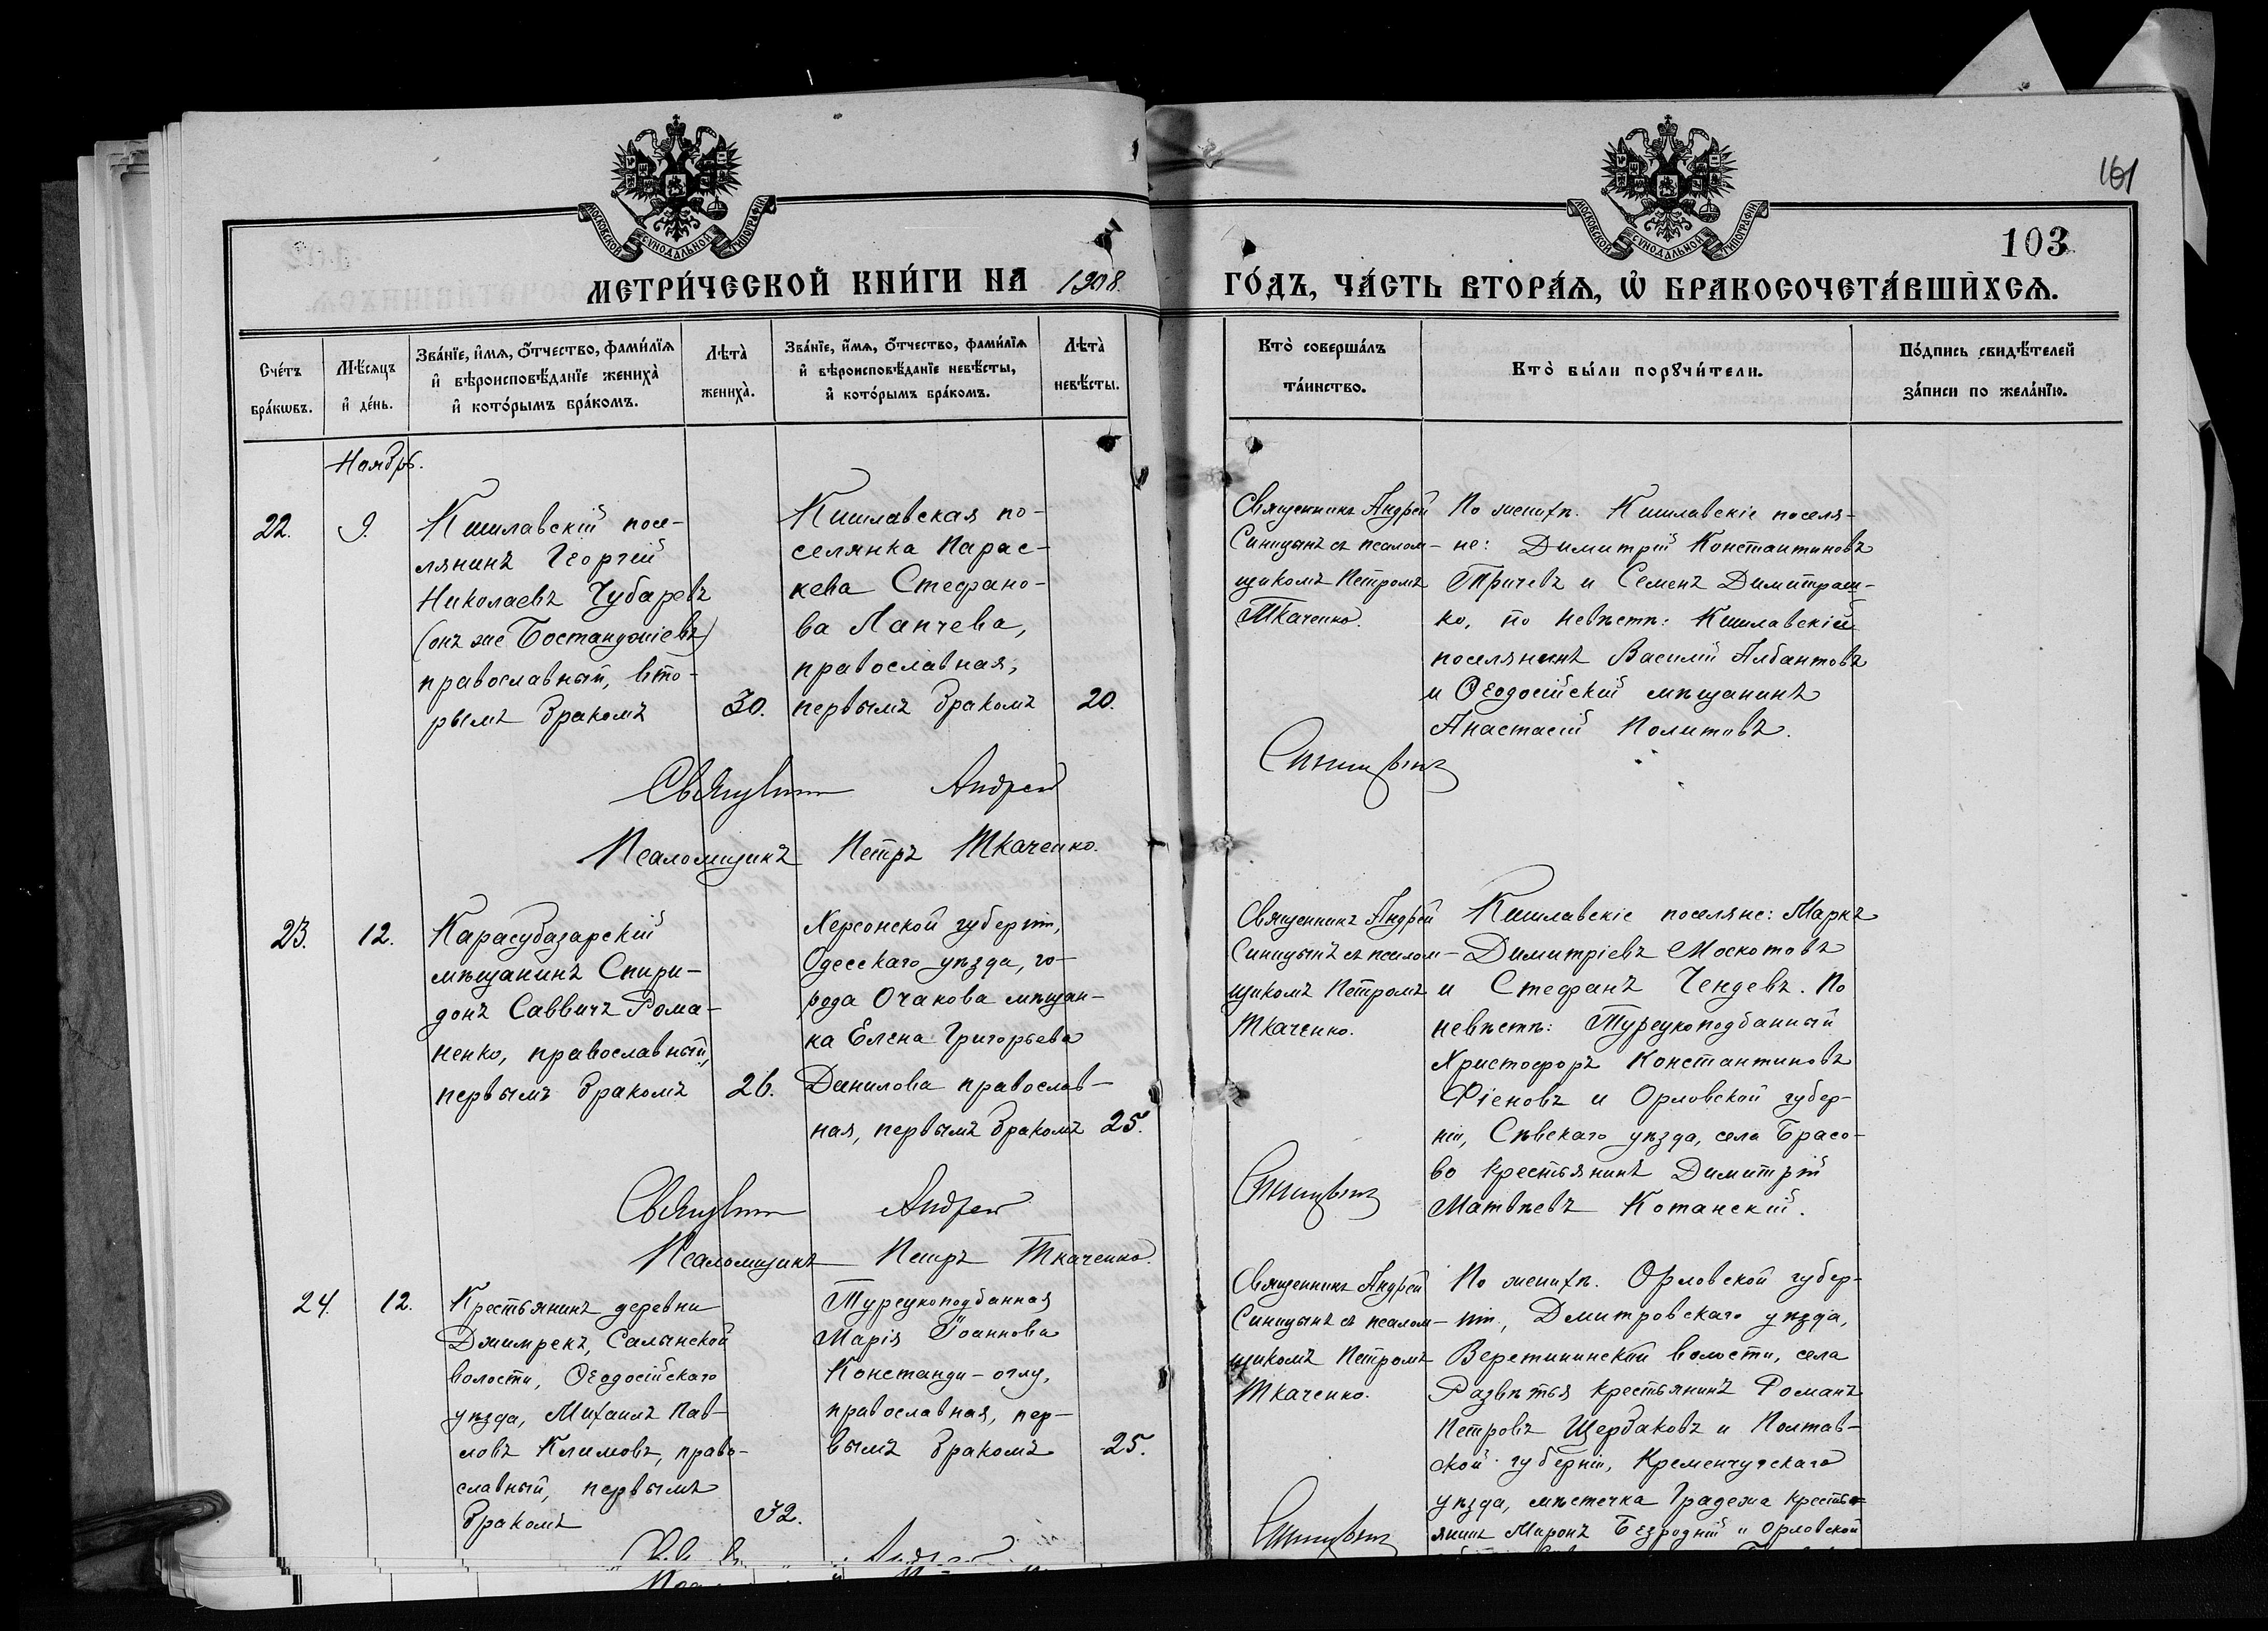 161
МОСКОВСКОЙ СѴНОДАЛЬНОЙ ТИПОГРАФІИ
МОСКОВСКОЙ СѴНОДАЛЬНОЙ ТИПОГРАФІИ
103
МЕТРИ́ЧЕСКОЙ КНИ́ГИ НА 1908.
ГО́ДЪ, ЧА́СТЬ ВТОРА́Ѧ, Ѡ҆ БРАКОСОЧЕТА́ВШИХСѦ.
Сче́тъ
бра́кѡвъ.
Мѣ́сѧцъ
и҆ де́нь.
Зва́нїе, и҆́мѧ, ѻ҆́тчество, фами́лїѧ
и҆ вѣроисповѣ́данїе жениха̀
и҆ кото́рымъ бра́комъ.
Лѣта̀
жениха̀.
Зва́нїе, и҆́мѧ, ѻ҆́тчество, фами́лїѧ
и҆ вѣроисповѣ́данїе невѣ́сты,
и҆ кото́рымъ бра́комъ.
Лѣта̀
невѣ́сты.
Кто̀ соверша́лъ
та́инство.
Кто̀ бы́ли порꙋчи́тели.
По́дпись свидѣ́телей
за́писи по жела́нїю.
Ноябрь.
22.
9.
Кишлавскій посе-
лянинъ Георгій
Николаевъ Чубаревъ
(онъ же Бостанджіевъ)
православный, вто-
рымъ бракомъ
30.
Кишлавская по-
селянка Парас-
кева Стефано-
ва Лапчева,
православная,
первымъ бракомъ
20.
Священникъ Андрей
Синицынъ съ псалом-
щикомъ Петромъ
Ткаченко.
По женихѣ. Кишлавскіе поселя-
не: Димитрій Константиновъ
Тричевъ и Семенъ Димитраш-
ко, по невѣстѣ: Кишлавскій
поселянинъ Василій Албантовъ
и Ѳеодосійскій мѣщанинъ
Анастасій Политовъ.
Священникъ Андрей
Синицынъ
Псаломщикъ Петръ Ткаченко.
23.
12.
Карасубазарскій
мѣщанинъ Спири-
донъ Саввичъ Рома-
ненко, православный,
первымъ бракомъ
26.
Херсонской губерніи,
Одесскаго уѣзда, го-
рода Очакова мѣщан-
ка Елена Григорьева
Данилова православ-
ная, первымъ бракомъ
25.
Священникъ Андрей
Синицынъ съ псалом-
щикомъ Петромъ
Ткаченко.
Кишлавскіе поселяне: Маркъ
Димитріевъ Москотовъ
и Стефанъ Чендевъ. По
невѣстѣ: Турецкоподданный
Христофоръ Константиновъ
Фіеновъ и Орловской губер-
ніи, Сѣвскаго уѣзда, села Брасо-
во крестьянинъ Димитрій
Матвѣевъ Котанскій.
Священникъ Андрей
Синицынъ
Псаломщикъ Петръ Ткаченко.
24.
12.
Крестьянинъ деревни
Джимрекъ, Салынской
волости, Ѳеодосійскаго
уѣзда, Михаилъ Пав-
ловъ Климовъ, право-
славный, первымъ
бракомъ
32.
Турецкоподданная
Марія Іоаннова
Констанди-оглу,
православная, пер-
вымъ бракомъ
25.
Священникъ Андрей
Синицынъ съ псалом-
щикомъ Петромъ
Ткаченко.
По женихѣ. Орловской губер-
ніи, Дмитровскаго уѣзда,
Веретининской волости, села
Развѣтья крестьянинъ Романъ
Петровъ Щербаковъ и Полтав-
ской губерніи, Кременчугскаго
уѣзда, мѣстечка Градежа кресть-
янинъ Маронъ Безродній и Орловской
Синицынъ